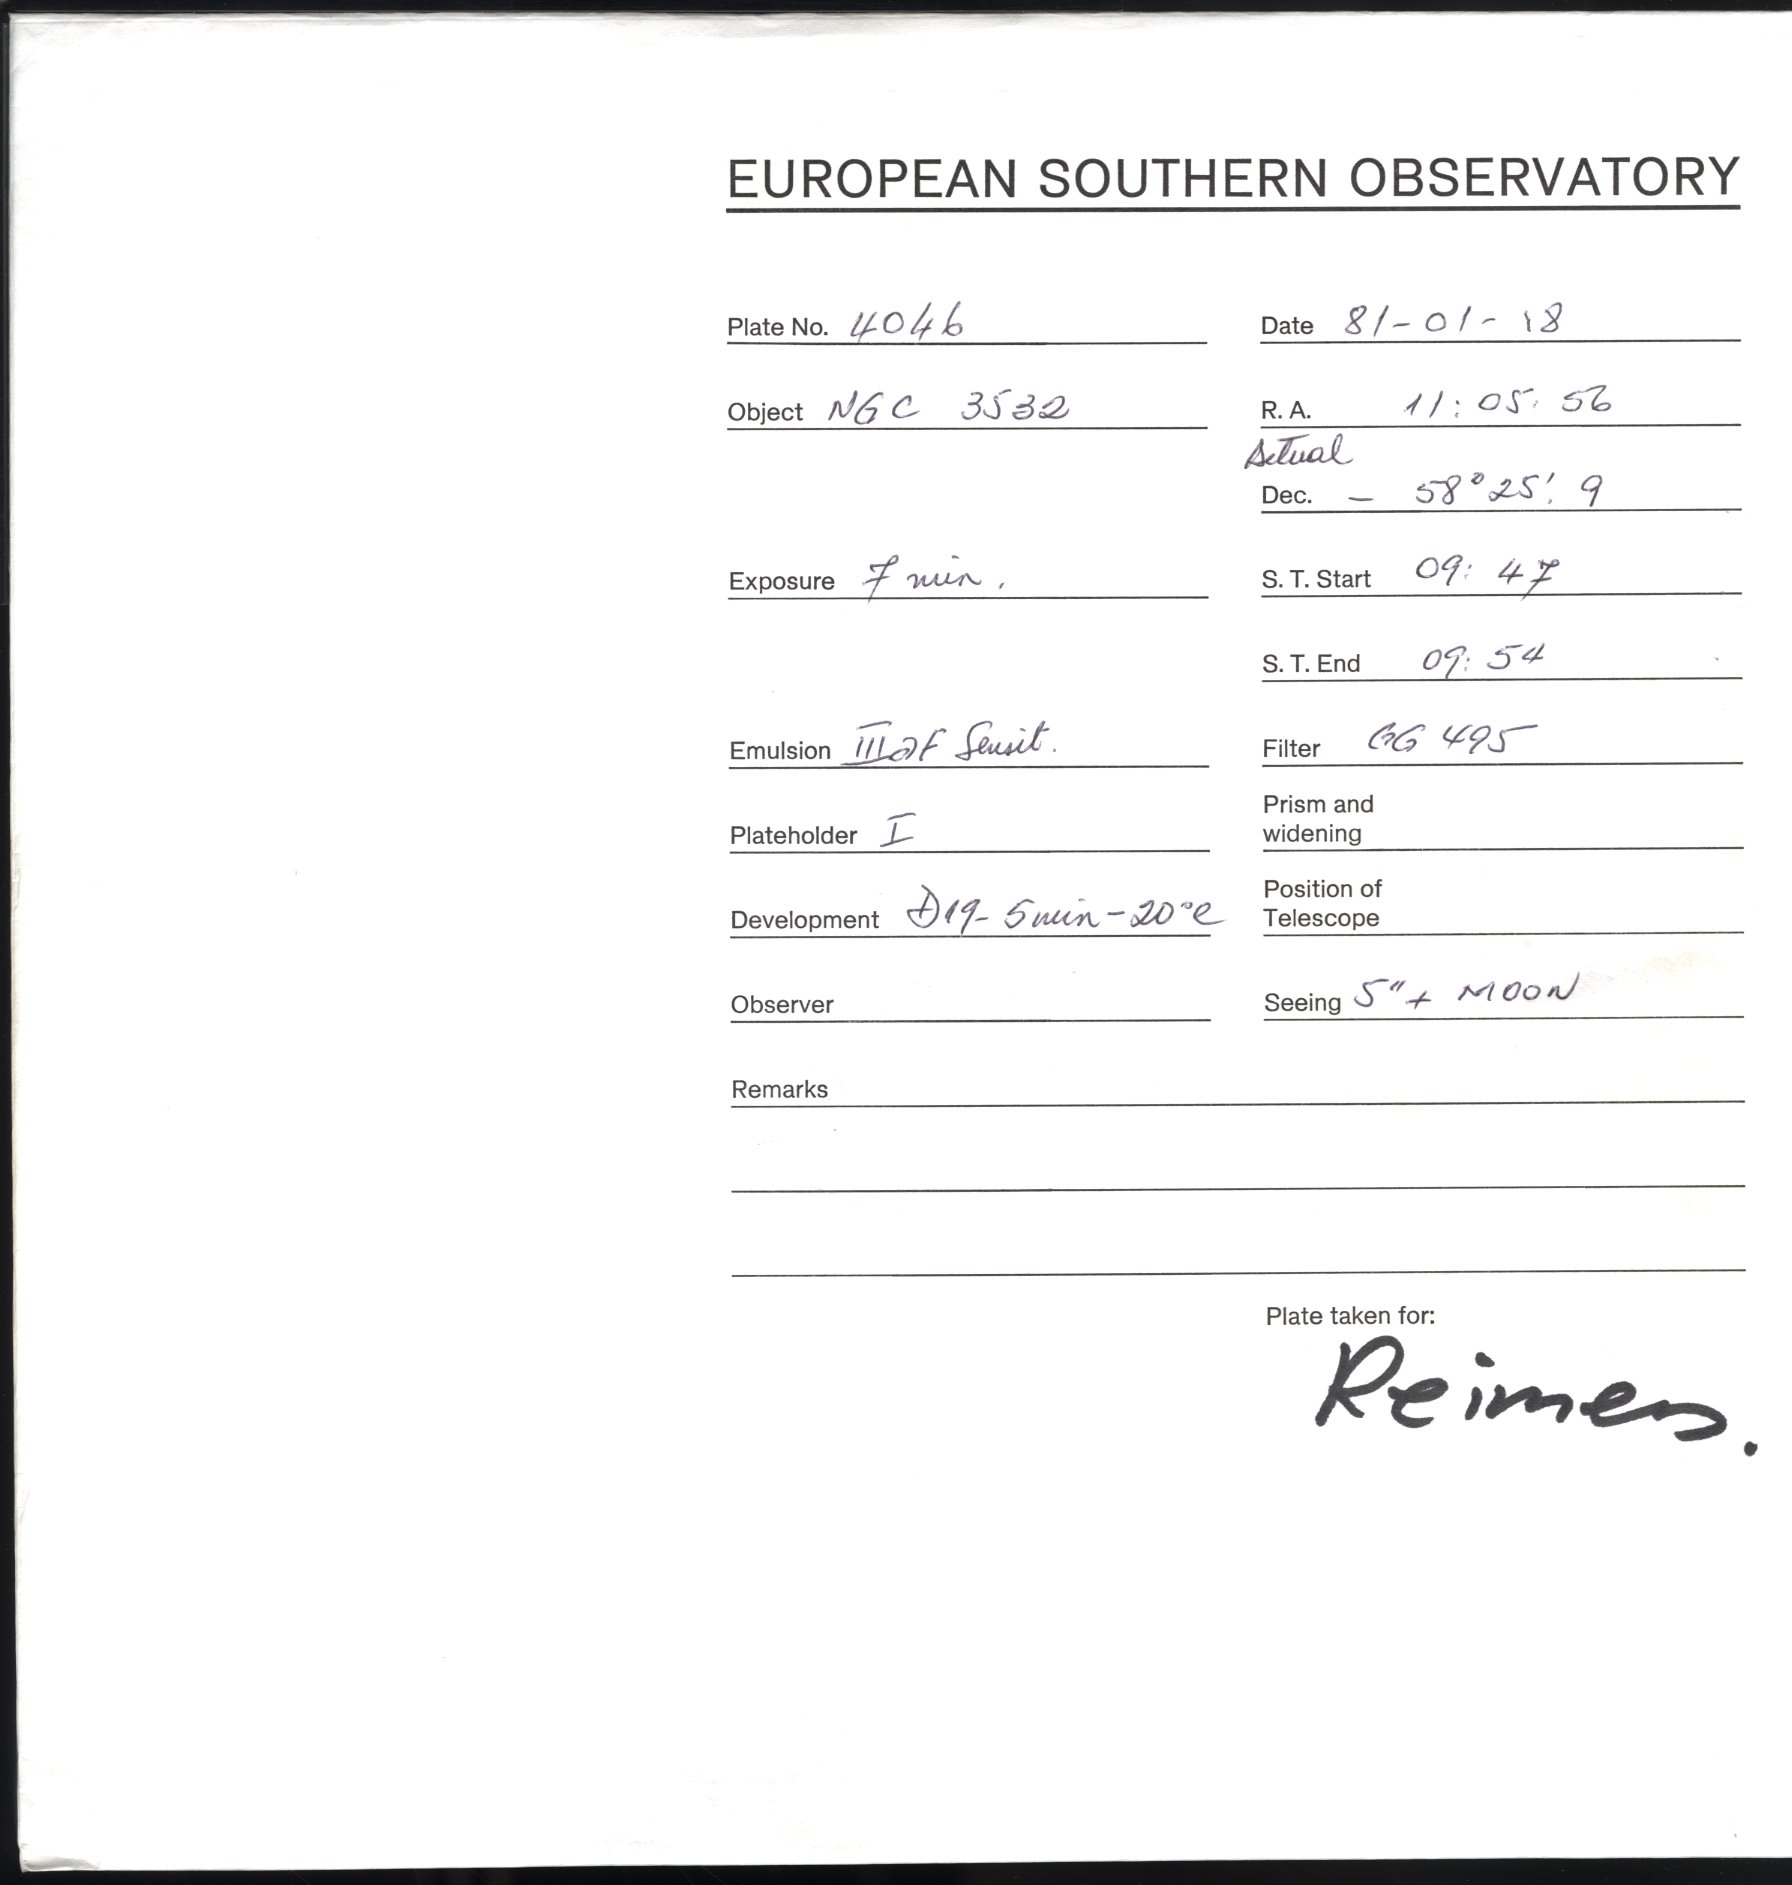 EUROPEAN SOUTHERN OBSERVATORY
Plate No. 4046
Date 81-01-18
Object NGC 3532
R. A. 11:05:56
Actual
Dec. - 58°25'.9
Exposure 7 min.
S. T. Start 09:47
S. T. End 09:54
Emulsion IIIaF Sensit.
Filter GG 495
Plateholder I
Prism and
widening
Development D19 - 5 min - 20°C
Position of
Telescope
Observer
Seeing 5"+ MOON
Remarks
Plate taken for:
Reimers.